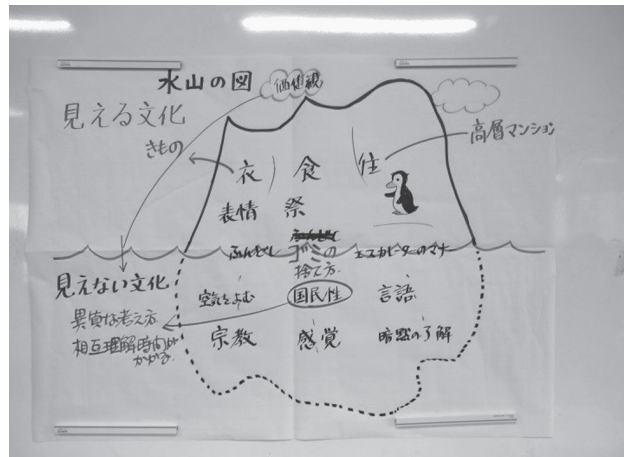 氷山の図
価値観
見える文化
きもの
高層マンション
衣 食 住
表情 祭
ゴミの
捨て方
エスカレーターのマナー
見えない文化
空気をよむ
国民性
言語
異質な考え方
相互理解時間が
かかる
宗教
感覚
暗黙の了解